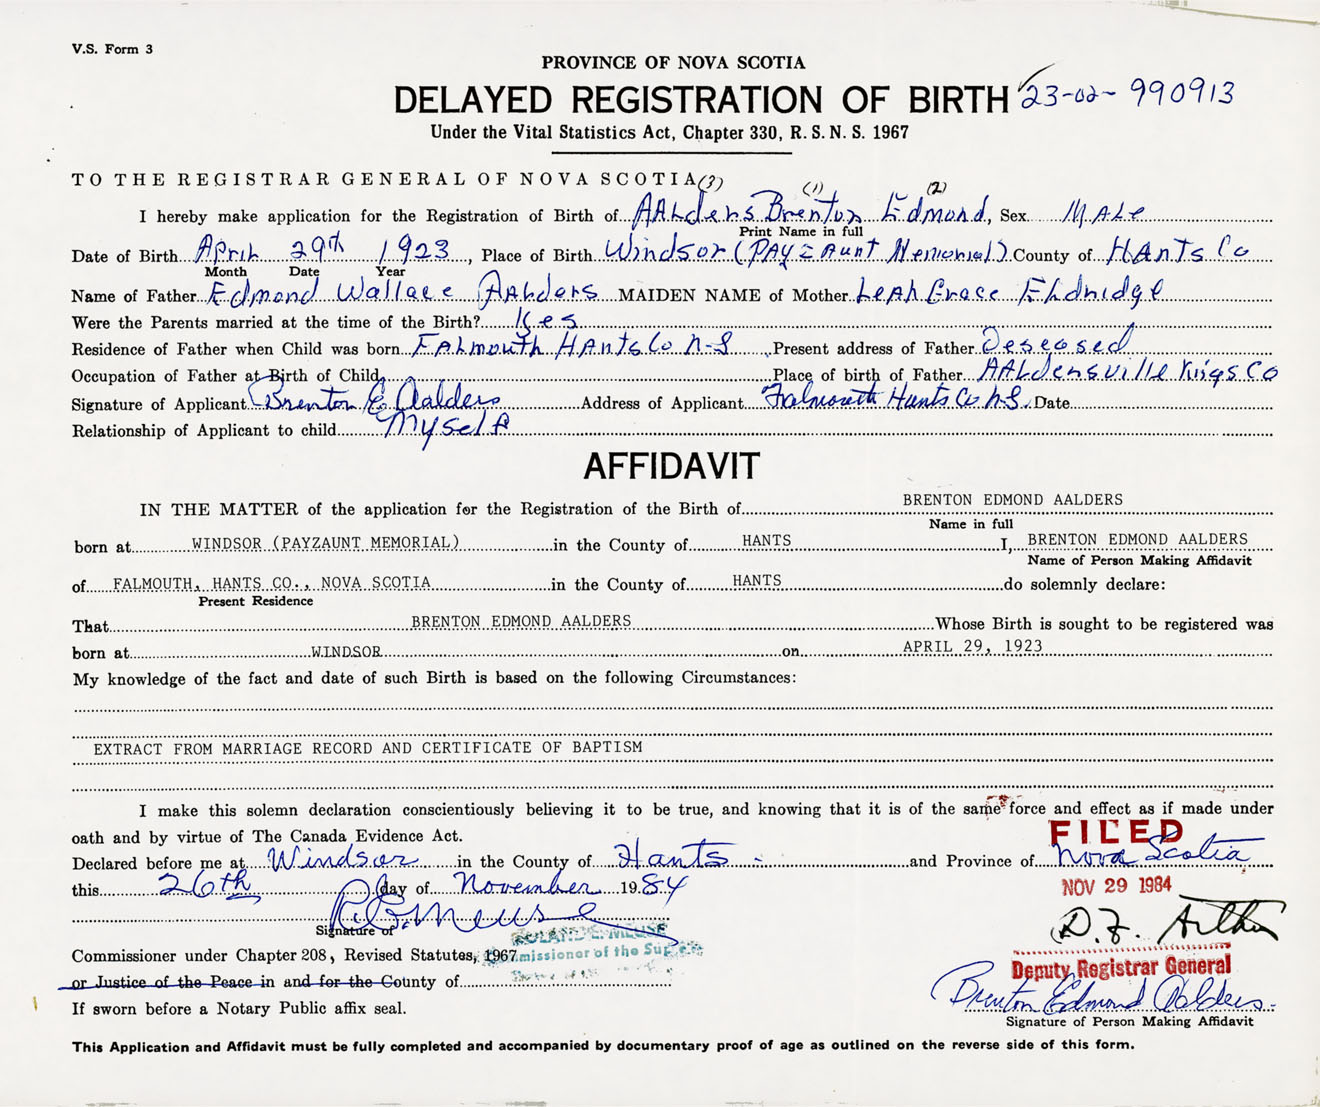 V.S. Form 3
PROVINCE OF NOVA SCOTIA
DELAYED REGISTRATION OF BIRTH 23-02-990913
Under the Vital Statistics Act, Chapter 330, R.S.N.S. 1967
TO THE REGISTRAR GENERAL OF NOVA SCOTIA (3) (1) (2)
I hereby make application for the Registration of Birth of AALders Brenton Edmond, Sex MALe
Print Name in full
Date of Birth April 29th 1923, Place of Birth Windsor (PAYZAunt Memorial) County of HAnts Co
Month Date Year
Name of Father Edmond Wallace AAlders MAIDEN NAME of Mother LeAh Grace Eldridge
Were the Parents married at the time of the Birth? Yes
Residence of Father when Child was born FALmouth HAnts Co N-S Present address of Father Deseased
Occupation of Father at Birth of Child Place of birth of Father AALdersville Kings Co
Signature of Applicant Brenton E Aalders Address of Applicant Falmouth Hants Co N.S. Date
Relationship of Applicant to child Myself
AFFIDAVIT
IN THE MATTER of the application for the Registration of the Birth of BRENTON EDMOND AALDERS
Name in full
born at WINDSOR (PAYZAUNT MEMORIAL) in the County of HANTS I, BRENTON EDMOND AALDERS
Name of Person Making Affidavit
of FALMOUTH, HANTS CO., NOVA SCOTIA in the County of HANTS do solemnly declare:
Present Residence
That BRENTON EDMOND AALDERS Whose Birth is sought to be registered was
born at WINDSOR on APRIL 29, 1923
My knowledge of the fact and date of such Birth is based on the following Circumstances:
EXTRACT FROM MARRIAGE RECORD AND CERTIFICATE OF BAPTISM
I make this solemn declaration conscientiously believing it to be true, and knowing that it is of the same force and effect as if made under
oath and by virtue of The Canada Evidence Act.
FILED
Declared before me at Windsor in the County of Hants and Province of Nova Scotia
this 26th day of November 1984
NOV 29 1984
R. E. Meuse
Signature of
D.F. Arthur
ROLAND E. MEUSE
Commissioner under Chapter 208, Revised Statutes, 1967
Commissioner of the Supreme
Deputy Registrar General
or Justice of the Peace in and for the County of
Brenton Edmond Aalders
If sworn before a Notary Public affix seal.
Signature of Person Making Affidavit
This Application and Affidavit must be fully completed and accompanied by documentary proof of age as outlined on the reverse side of this form.